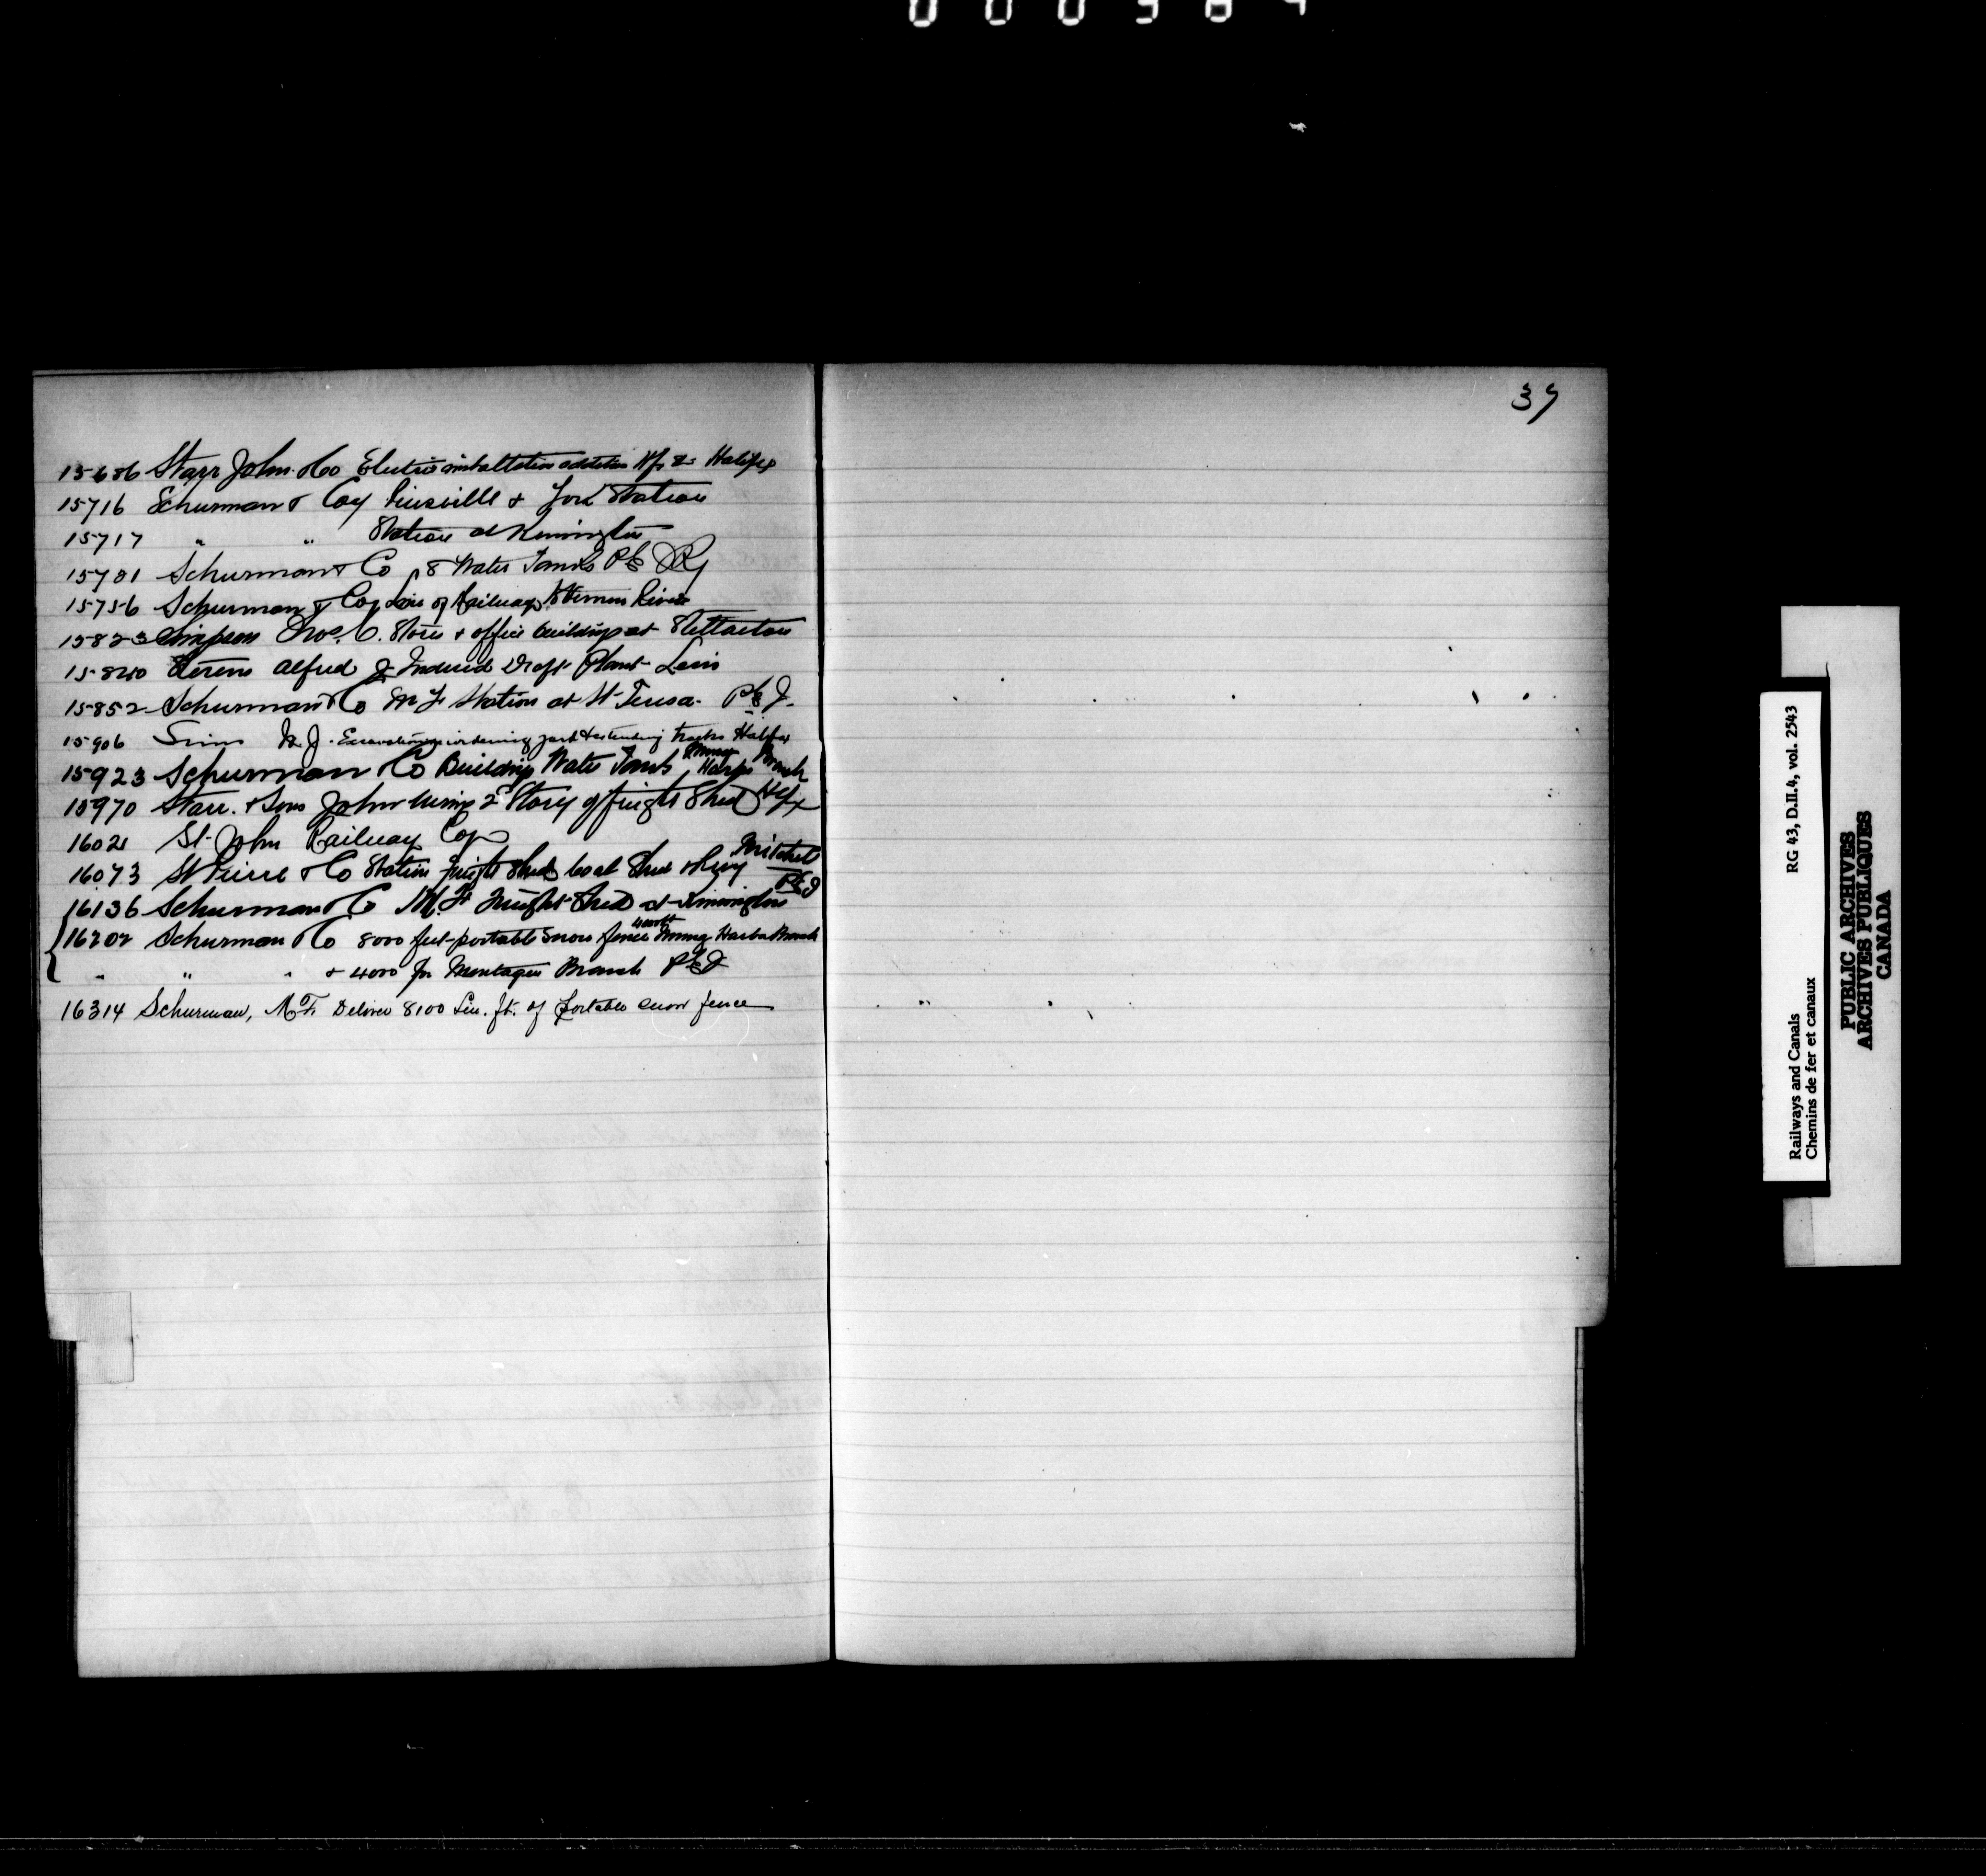 37
15686 Starr John & Co Electric installation addition Wf 2 Halifax
15716 Schurman & Coy & York Station
15717 " " Station at Kensington
Schurman & Co 8 Water Tanks PE Ry
15756 Schurman & Coy of Railway Vernon River
15823 Simpson Thos. C. Store & office building at Stellarton
15840 Alfred J Induced Draft Plant Levis
15852 Schurman & Co M F Station at St Teresa P E I.
15906 Sims Excavating widening yard & extending tracks Halifax
15923 Schurman & Co Building Water Tank Murray Harbr Branch
15970 Starr & Sons John wiring 2d Story of freight Shed Hfx
16021 St. John Railway Coy
16073 St Pierre & Co Station freight Shed coal Shed Mitchell
16136 Schurman & Co M. F. Freight Shed at Kensington PEI
16202 Schurman & Co 8000 feet portable snow fence Murray Harbor Branch
" " " & 4000 for Montague Branch PEI
16314 Schurman, M. F. Deliver 8100 Lin. ft. of Portable snow fence
Railways and Canals RG 43, D.II.4, vol. 2543
Chemins de fer et canaux
PUBLIC ARCHIVES
ARCHIVES PUBLIQUES
CANADA